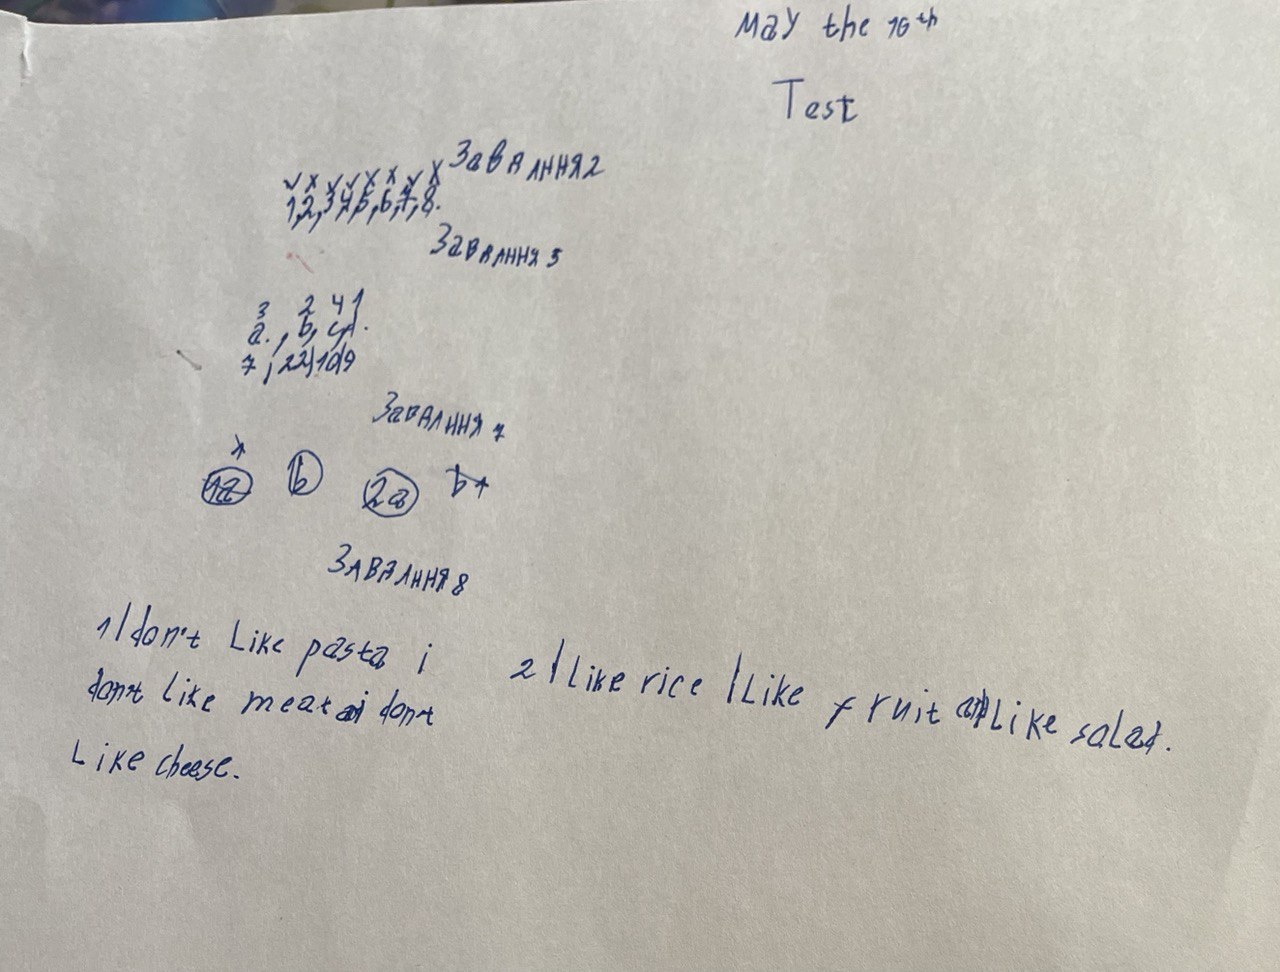 May the 16th
Test
Завдання 2
✓ x ✓ ✓ x x ✓ x
1, 2, 3, 4, 5, 6, 7, 8.
Завдання 5
3 2 4 1
a., b, c, d.
7, 22, 10, 9
Завдання 7
1a b 2a b
Завдання 8
1 I don't Like pasta i
don't like meat i don't
Like cheese.
2 I Like rice I Like fruit I Like salad.